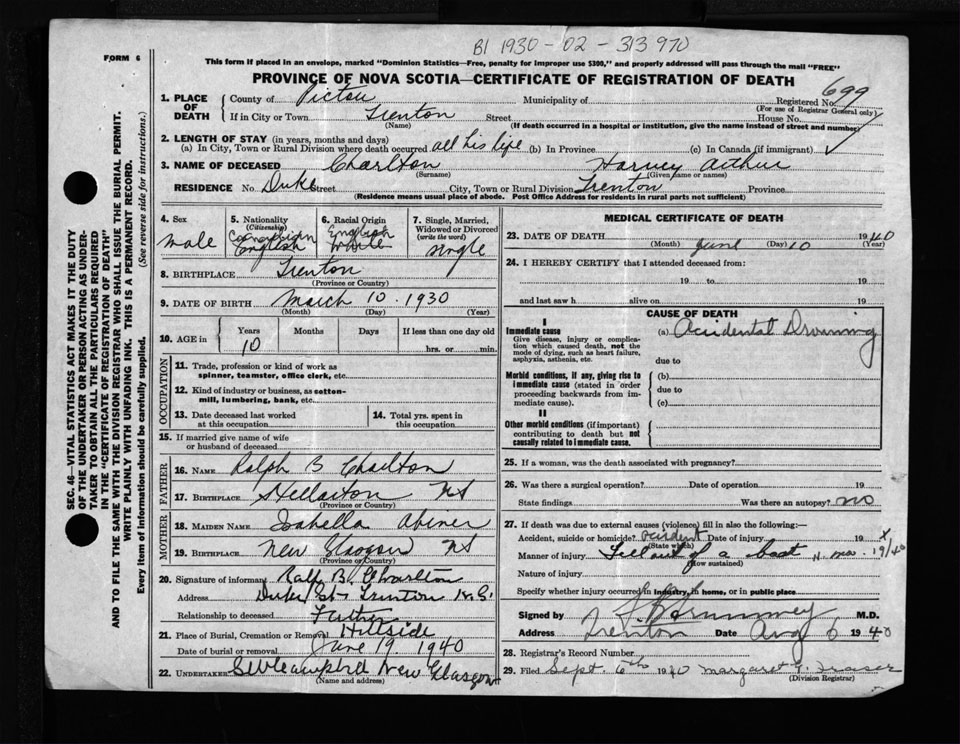 BI 1930 - 02 - 313970
FORM 6
This form if placed in an envelope, marked "Dominion Statistics—Free, penalty for improper use $300," and properly addressed will pass through the mail "FREE"
PROVINCE OF NOVA SCOTIA—CERTIFICATE OF REGISTRATION OF DEATH
SEC. 46—VITAL STATISTICS ACT MAKES IT THE DUTY
OF THE UNDERTAKER OR PERSON ACTING AS UNDER
TAKER TO OBTAIN ALL THE PARTICULARS REQUIRED
IN THE "CERTIFICATE OF REGISTRATION OF DEATH"
AND TO FILE THE SAME WITH THE DIVISION REGISTRAR WHO SHALL ISSUE THE BURIAL PERMIT.
WRITE PLAINLY WITH UNFADING INK. THIS IS A PERMANENT RECORD.
Every item of information should be carefully supplied. (See reverse side for instructions.)
1. PLACE OF DEATH County of Pictou Municipality of Registered No. 699
(For use of Registrar General only)
If in City or Town Trenton Street House No.
(Name) (If death occurred in a hospital or institution, give the name instead of street and number)
2. LENGTH OF STAY (in years, months and days)
(a) In City, Town or Rural Division where death occurred all his life (b) In Province (c) In Canada (if immigrant)
3. NAME OF DECEASED Charlton Harvey Arthur
(Surname) (Given name or names)
RESIDENCE No. Duke Street City, Town or Rural Division Trenton Province
(Residence means usual place of abode. Post Office Address for residents in rural parts not sufficient)
4. Sex
male
5. Nationality
(Citizenship)
Canadian
English
6. Racial Origin
English
White
7. Single, Married,
Widowed or Divorced
(write the word)
single
8. BIRTHPLACE Trenton
(Province or Country)
9. DATE OF BIRTH March 10 . 1930
(Month) (Day) (Year)
10. AGE in Years Months Days If less than one day old
10 hrs. or min.
OCCUPATION
11. Trade, profession or kind of work as
spinner, teamster, office clerk, etc.
12. Kind of industry or business, as cotton-
mill, lumbering, bank, etc.
13. Date deceased last worked
at this occupation
14. Total yrs. spent in
this occupation
15. If married give name of wife
or husband of deceased
FATHER
16. NAME Ralph B Charlton
17. BIRTHPLACE Stellarton NS
(Province or Country)
MOTHER
18. MAIDEN NAME Isabella
19. BIRTHPLACE New Glasgow NS
(Province or Country)
20. Signature of informant Ralf B. Charlton
Address Duke St Trenton N.S.
Relationship to deceased Father
21. Place of Burial, Cremation or Removal Hillside
Date of burial or removal June 19, 1940
22. UNDERTAKER Campbell New Glasgow
(Name and address)
MEDICAL CERTIFICATE OF DEATH
23. DATE OF DEATH June 10 1940
(Month) (Day) (Year)
24. I HEREBY CERTIFY that I attended deceased from:
19 to 19
and last saw h alive on 19
CAUSE OF DEATH
I
Immediate cause
Give disease, injury or complica-
tion which caused death, not the
mode of dying, such as heart failure,
asphyxia, asthenia, etc.
(a) Acidental Drowning
due to
Morbid conditions, if any, giving rise to
immediate cause (stated in order
proceeding backwards from im-
mediate cause).
(b)
due to
(c)
II
Other morbid conditions (if important)
contributing to death but not
causally related to immediate cause.
25. If a woman, was the death associated with pregnancy?
26. Was there a surgical operation? Date of operation 19
State findings Was there an autopsy? no
27. If death was due to external causes (violence) fill in also the following:—
Accident, suicide or homicide? acident Date of injury 19
(State which)
Manner of injury Fell out of a boat
(How sustained)
Nature of injury
Specify whether injury occurred in industry, in home, or in public place
Signed by M.D.
Address Trenton Date Aug 6 1940
28. Registrar's Record Number
29. Filed Sept. 6th 1940 Margaret F. Fraser
(Division Registrar)